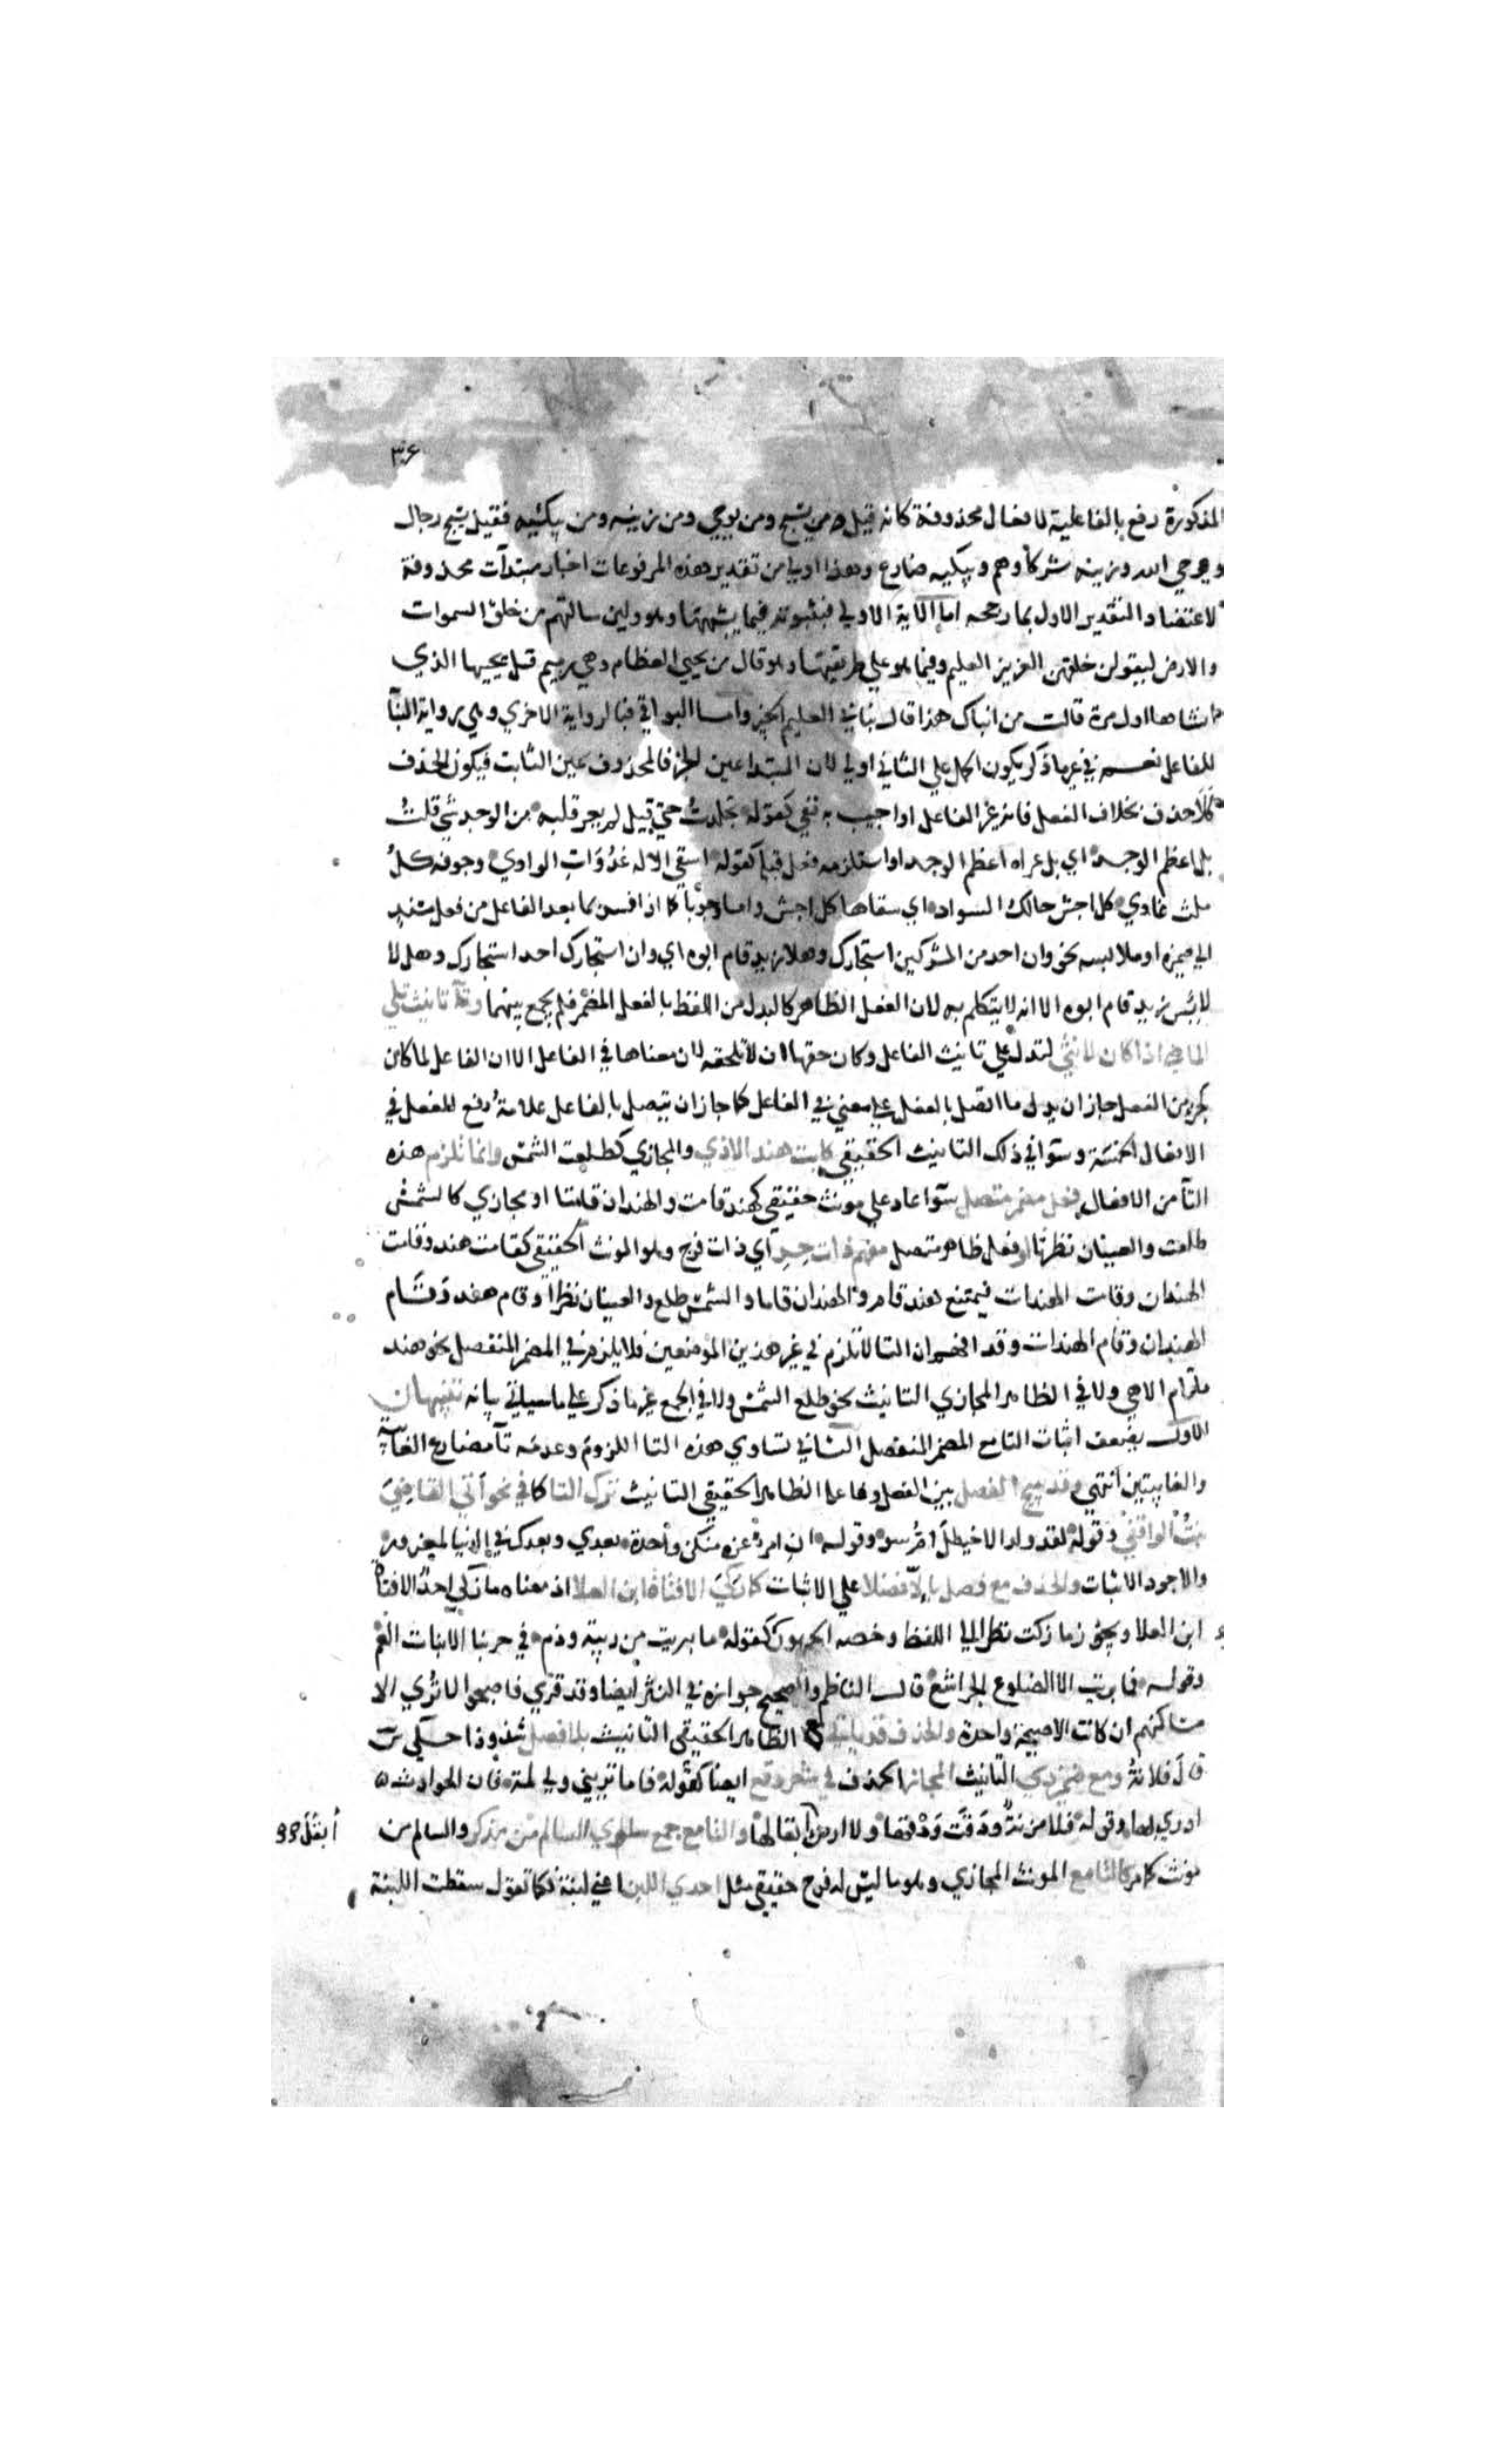 ٣٠٤
المذكورة رفع بالفاعلية لافعال محذوفة كانه قيل من يسبح ومن يوحي ومن زينه ومن يبكيه فقيل يسبح رجال
ويوحي الله وزينه شركاوهم ويبكيه ضارع وهذا اولي من تقدير هذه المرفوعات اخبار مبتدآت محذوفة
لاعتضاد التقدير الاول بما رجحه اما الآية الاولي فبثبوته فيما يشبهها وهو ولين سالتهم من خلق السموات
والارض ليقولن خلقهن العزيز العليم وفيما هو علي طريقتها وهو قال من يحيي العظام وهي رميم قل يحييها الذي
انشاها اول مرة قالت من انباك هذا قال نباني العليم الخبير واما البواقي فبالرواية الاخري وهي رواية البنآ
للفاعل نعم في غير ما ذكر يكون الحمل علي الثاني اولي لان المبتدا عين الخبر فالمحذوف عين الثابت فيكون الحذف
كلاحذف بخلاف الفعل فانه غير الفاعل او اجيب به نفي كقوله تجلدتُ حتي قيل لم يعر قلبه من الوجد شي قلتُ
بل اعظم الوجد اي بل عراه اعظم الوجد او استلزمه فعل قبله كقوله اسقي الاله غُدُوَاتِ الوادي وجوفه كلُ
ملث غادي كل اجش حالك السواد اي سقاها كل اجش واما وجوبًا كما اذا فسر بما بعد الفاعل من فعل مسند
الي ضميره او ملابسه نحو وان احد من المشركين استجارك وهلا زيد قام ابوه اي وان استجارك احد استجارك وهلا
لابس زيد قام ابوه الا انه لا يتكلم به لان الفعل الظاهر كالبدل من اللفظ بالفعل المضمر فلم يجمع بينهما وتآ تانيث تلي
الماضي اذا كان لانثي لتدل علي تانيث الفاعل وكان حقها ان لا تلحقه لان معناها في الفاعل الا ان الفاعل لما كان
كجزء من الفعل جاز ان يدل ما اتصل بالفعل علي معني في الفاعل كما جاز ان يتصل بالفاعل علامةُ رفع الفعل في
الافعال الخمسة وسوآ في ذلك التانيث الحقيقي كابت هند الاذي والمجازي كطلعت الشمس وانما تلزم هذه
التآ من الافعال فعل مضمر متصل سوآ عاد علي مونث حقيقي كهند قامت والهندان قامتا او مجازي كالشمس
طلعت والعينان نظرتا او فعل ظاهر متصل مفهم ذات حِرِ اي ذات فرج وهو المونث الحقيقي كقامت هند وقامت
الهندان وقامت الهندات فيمتنع هند قام والهندان قاما والشمس طلع والعينان نظرا وقام هند وقام
الهندان وقام الهندات وقد افهم ان التا لا تلزم في غير هذين الموضعين فلا يلزم في المضمر المنفصل نحو هند
ما قام الا هي ولا في الظاهر المجازي التانيث نحو طلع الشمس ولا في الجمع غير ما ذكر علي ما سياتي بيانه تنبيهان
الاول يضعف اثبات التا مع المضمر المنفصل الثاني تساوي هذه التا اللزوم وعدمه تآ مضارع الغايبة
والغايبتين انتهي وقد يبيح الفصل بين الفعل وفاعله الظاهر الحقيقي التانيث ترك التا كما في نحو أتَي القاضِيَ
بنتُ الواقفْ وقوله لقد ولد الاخيطلَ اُمُّ سوء وقوله ان امرءً غره منكن واحدة بعدي وبعدك في الدنيا لمغرور
والاجود الاثبات والحذف مع فصل باِلاّ فُضّلا علي الاثبات كما زكَيَ الا فتاةُ ابن العلا اذ معناه ما زكي احدٌ الا فتاة
ابن العلا ويجوز ما زكت نظرا الي اللفظ وخصه الجمهور كقوله ما بريت من ريبة وذم في حربنا الا بنات العم
وقوله فما بقيت الا الضلوع الجراشع قال الناظم والصحيح جوازه في النثر ايضا وقد قري فاصبحوا لا تُري الا
مساكنهم ان كانت الا صيحة واحدة والحذف قد ياتي مع الظاهر الحقيقي التانيث بلا فصل شذوذا حكي س
قالَ فلانةُ ومع ضمير ذي التانيث المجاز الحذف في شعر وقع ايضا كقوله فاما تريني ولي لمة فان الحوادث
اودي بها وقوله فلا مزنةٌ ودَقَتْ وَدْقَها ولا ارضَ ابقل ابقالها والتا مع جمع سوي السالم من مذكر والسالم من
أبقَلَ
مونث كما مر كالتا مع المونث المجازي وهو ما ليس له فرج حقيقي مثل احدي اللبن اعني لبنة فكما تقول سقطت اللبنة